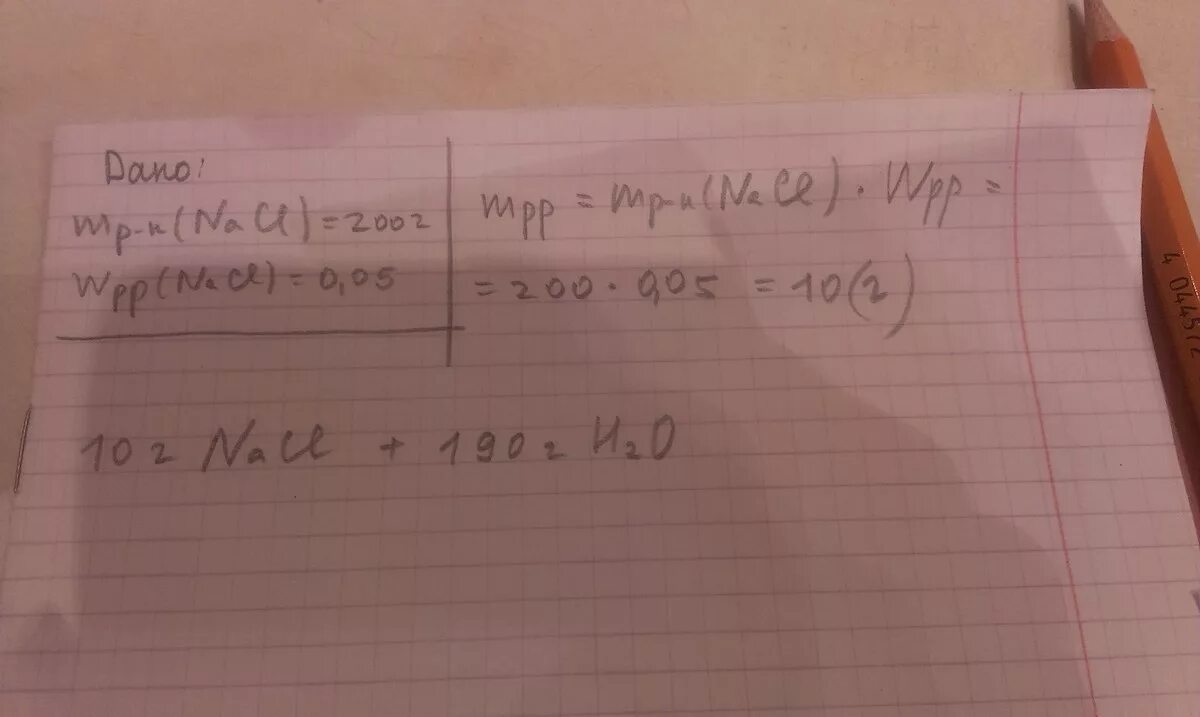 Дано:
mр-н(NaCl)=200г
Wрр(NaCl)=0,05
mрр = mр-н(NaCl) · Wрр =
= 200 · 0,05 = 10(г)
10 г NaCl + 190 г H₂O